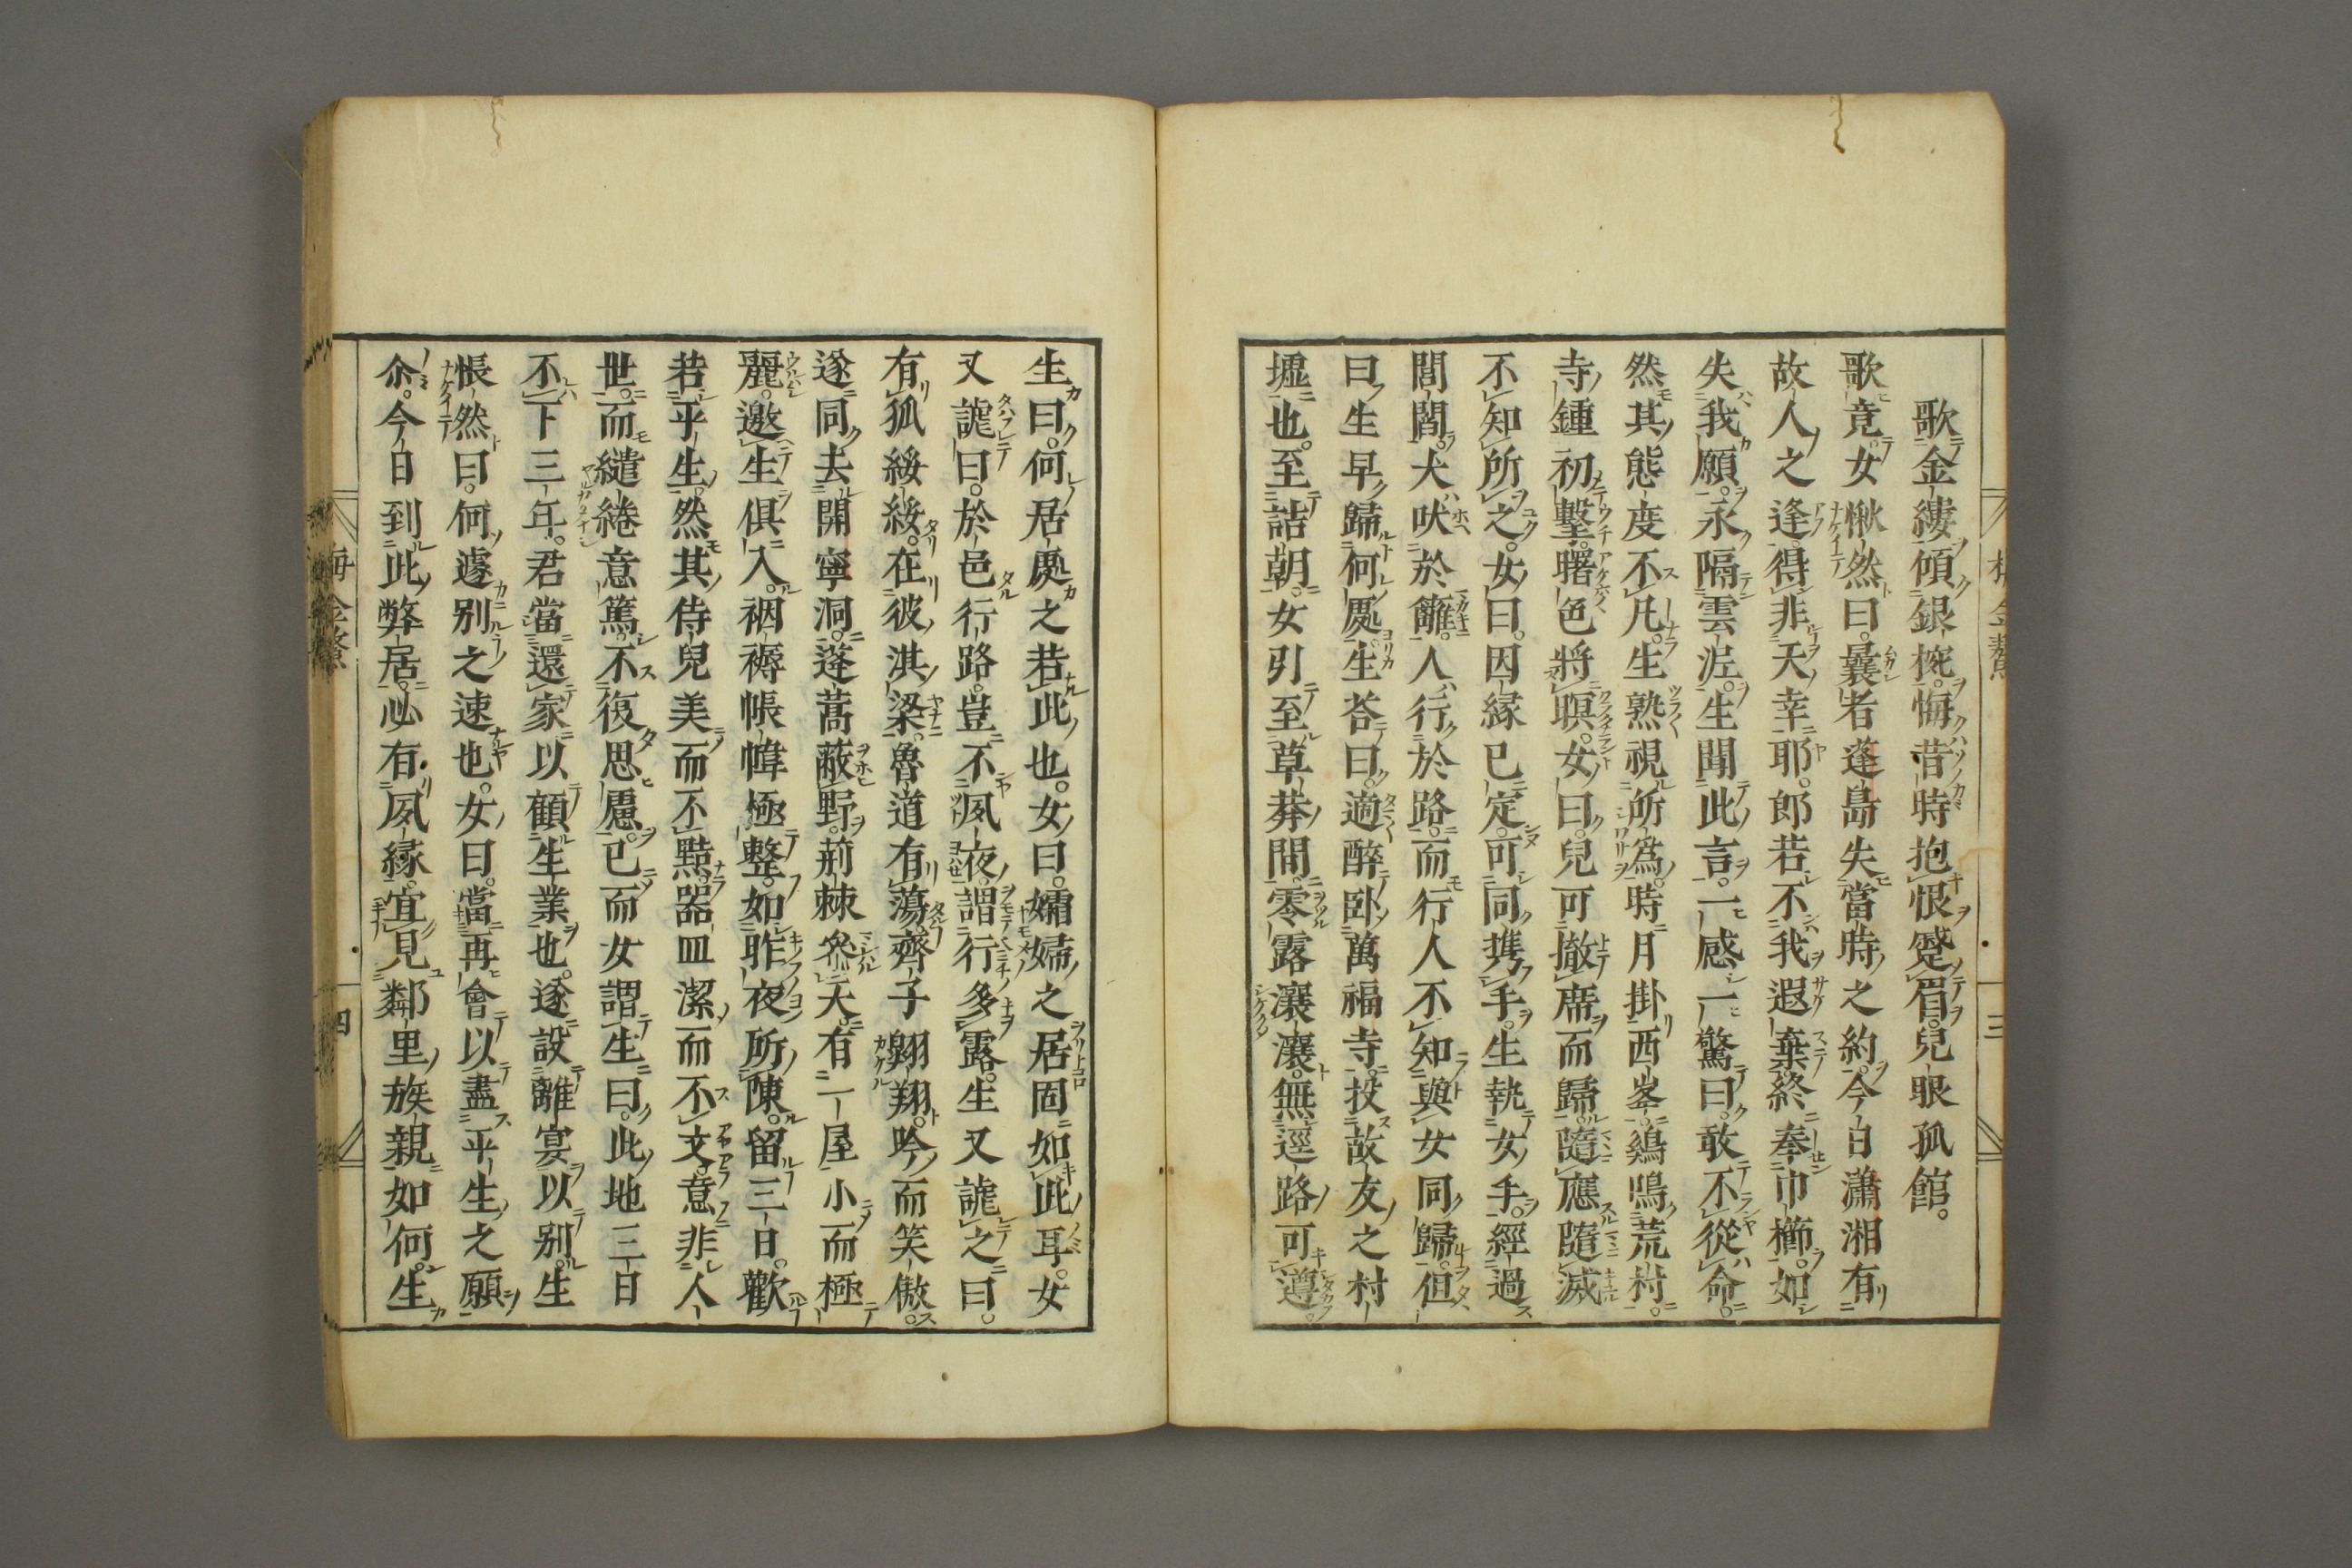 歌金縷傾銀椀。悔昔時抱恨蹙眉。兒眼孤館。
歌竟。女愀然曰。曩者蓬島失當時之約。今日瀟湘有
故人之逢。得非天幸耶。郎若不我遐棄。終奉巾櫛。如
失我願。永隔雲泥。生聞此言。一感一驚曰。敢不從命。
然其態度不凡。生熟視所爲。時月掛西峯。鷄鳴荒村。
寺鍾初擊。曙色將暝。女曰。兒可撤席而歸。隨應隨滅
不知所之。女曰。因縁已定。可同携手。生執女手。經過
閭閻。犬吠於籬。人行於路。而行人不知與女同歸。但
曰生早歸何處。生荅曰。適醉卧萬福寺。投故友之村
墟也。至詰朝。女引至草莽間。零露瀼瀼。無逕路可遵。
三
生曰。何居處之若此也。女曰。孀婦之居固如此耳。女
又謔曰。於邑行路。豈不夙夜。謂行多露。生又謔之曰。
有狐綏綏。在彼淇梁。魯道有蕩。齊子翱翔。吟而笑傲。
遂同去開寧洞。蓬蒿蔽野。荊棘參天。有一屋小而極
麗。邀生俱入。裀褥帳幃極整。如昨夜所陳。留三日。歡
若平生。然其侍兒美而不黠。器皿潔而不文。意非人
世。而繾綣意篤。不復思慮。已而女謂生曰。此地三日
不下三年。君當還家以顧生業也。遂設離宴以別。生
悵然曰。何遽別之速也。女曰。當再會以盡平生之願
尒。今日到此弊居。必有夙縁。宜見鄰里族親如何。生
四